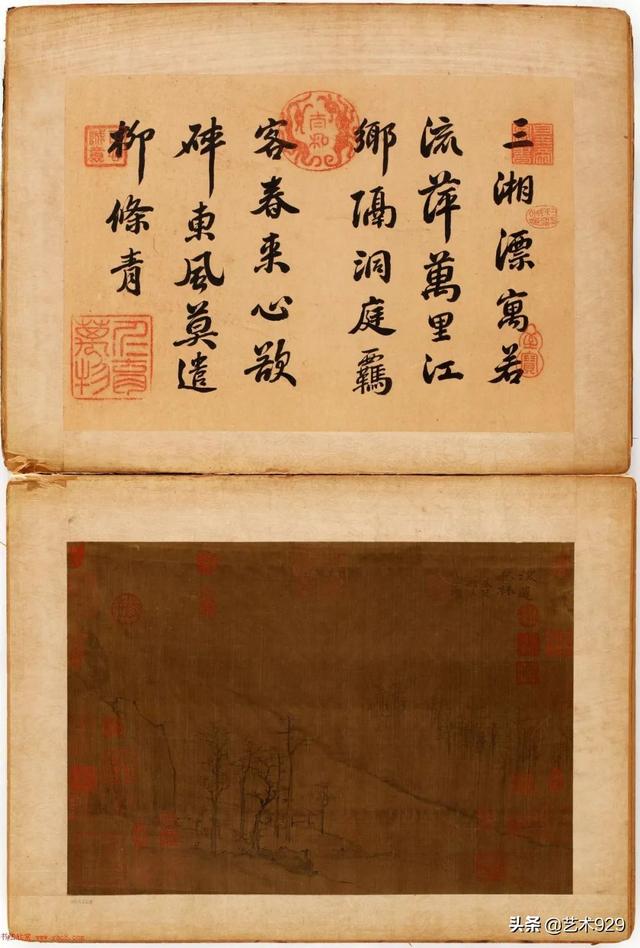 三湘漂寓若
流萍萬里江
鄉隔洞庭羈
客春来心欲
碎東風莫遣
柳條青
太和
头条 @艺术929